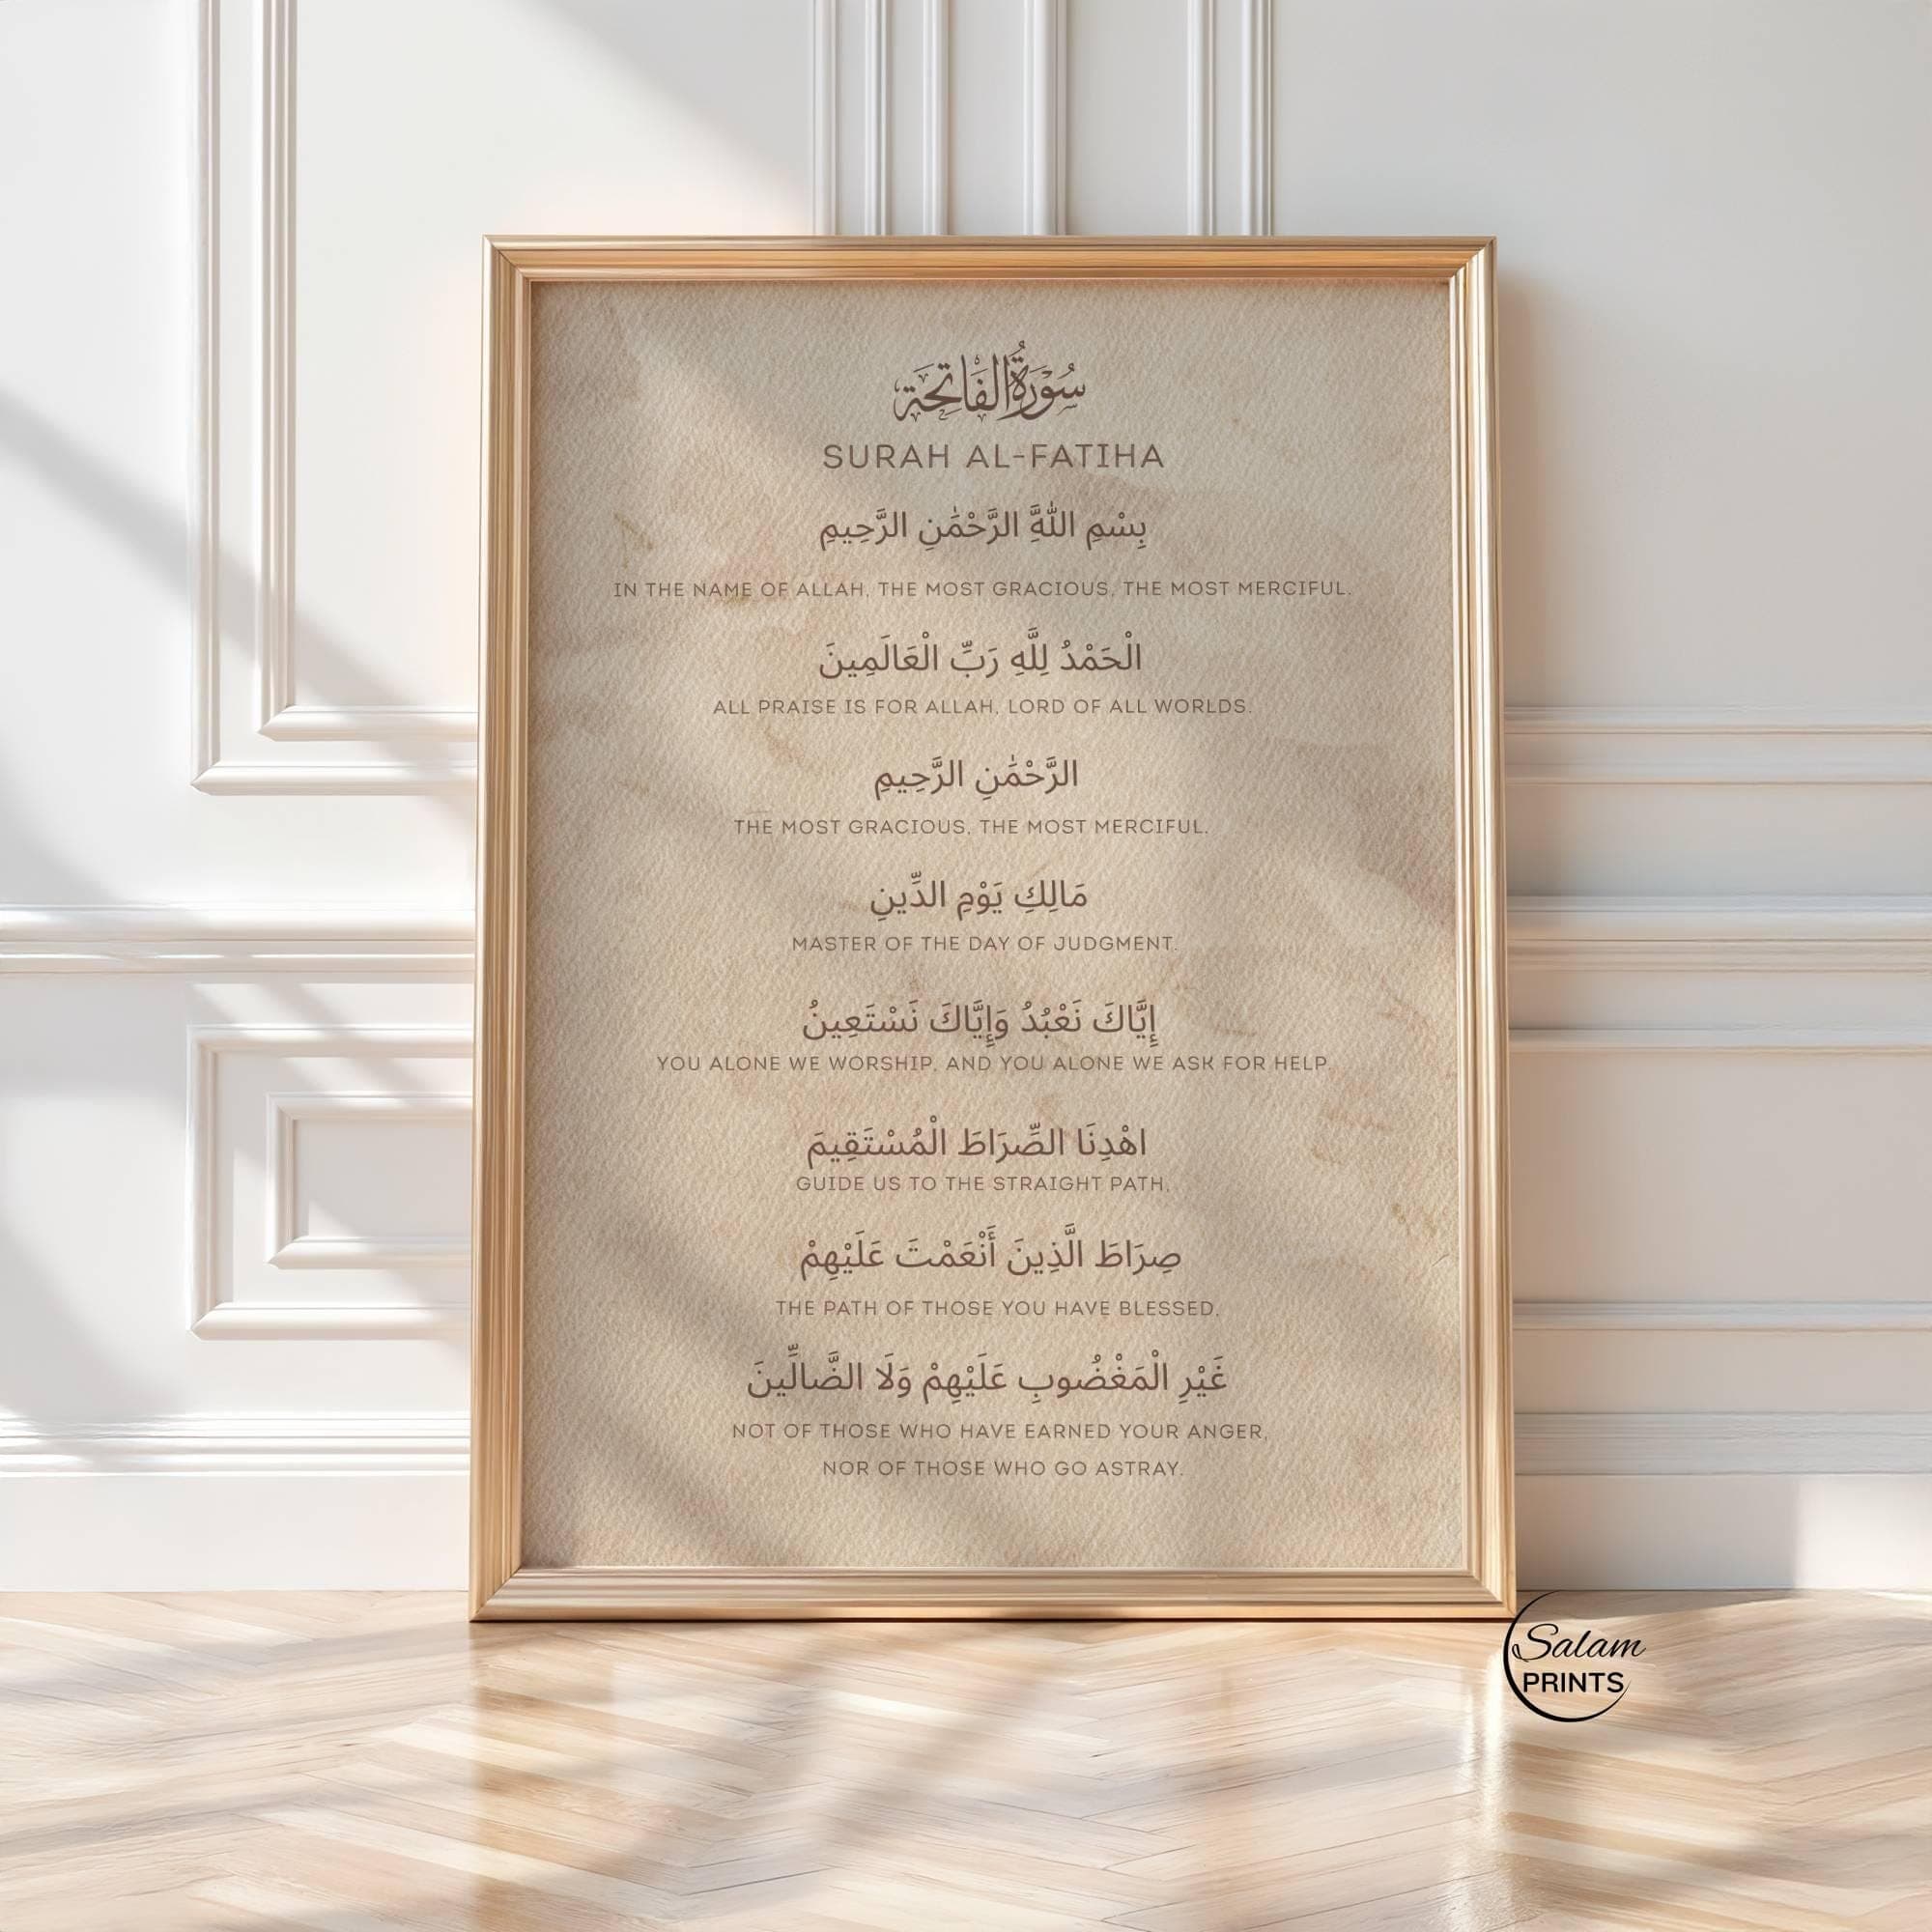 سُوْرَةُ الفَاتِحَة
SURAH AL-FATIHA
بِسْمِ اللَّهِ الرَّحْمَٰنِ الرَّحِيمِ
IN THE NAME OF ALLAH, THE MOST GRACIOUS, THE MOST MERCIFUL.
الْحَمْدُ لِلَّهِ رَبِّ الْعَالَمِينَ
ALL PRAISE IS FOR ALLAH, LORD OF ALL WORLDS.
الرَّحْمَٰنِ الرَّحِيمِ
THE MOST GRACIOUS, THE MOST MERCIFUL.
مَالِكِ يَوْمِ الدِّينِ
MASTER OF THE DAY OF JUDGMENT.
إِيَّاكَ نَعْبُدُ وَإِيَّاكَ نَسْتَعِينُ
YOU ALONE WE WORSHIP, AND YOU ALONE WE ASK FOR HELP.
اهْدِنَا الصِّرَاطَ الْمُسْتَقِيمَ
GUIDE US TO THE STRAIGHT PATH,
صِرَاطَ الَّذِينَ أَنْعَمْتَ عَلَيْهِمْ
THE PATH OF THOSE YOU HAVE BLESSED,
غَيْرِ الْمَغْضُوبِ عَلَيْهِمْ وَلَا الضَّالِّينَ
NOT OF THOSE WHO HAVE EARNED YOUR ANGER,
NOR OF THOSE WHO GO ASTRAY.
Salam
PRINTS